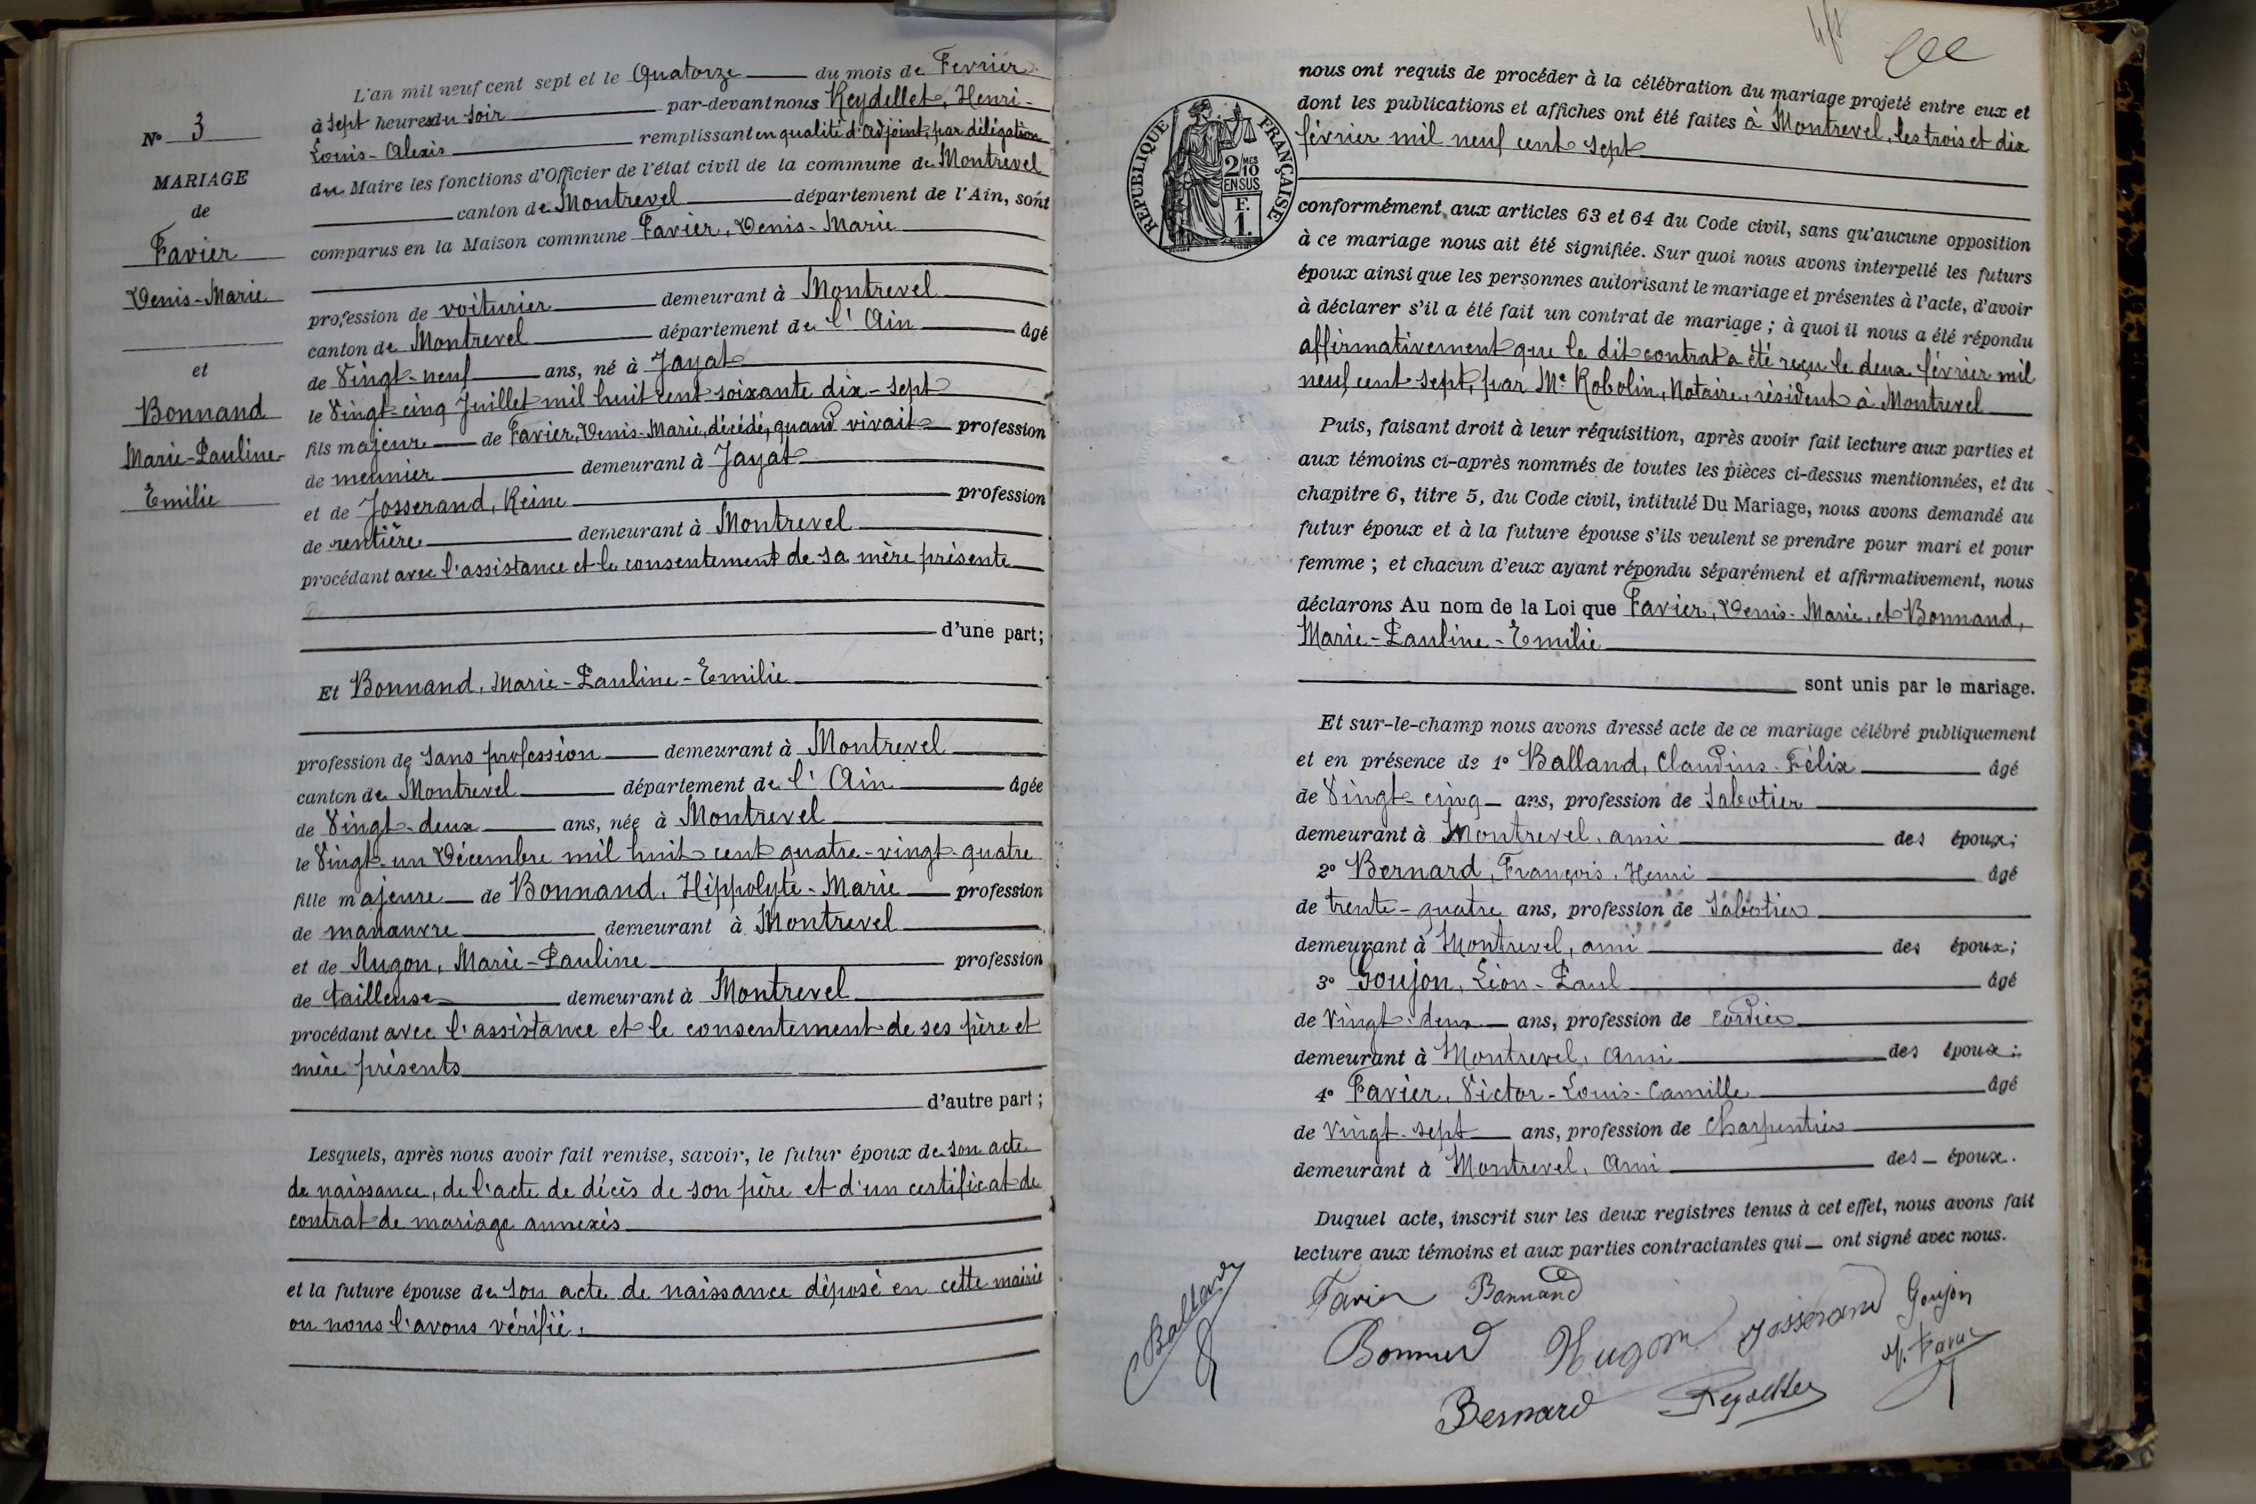 N° 3
MARIAGE
de
Favier
Denis-Marie
et
Bonnand
Marie-Pauline-
Emilie
L'an mil neuf cent sept et le Quatorze du mois de Fevrier
à sept heures du soir par-devant nous Reydellet, Henri-
Louis-Alexis remplissant en qualité d'adjoint, par délégation
du Maire les fonctions d'Officier de l'état civil de la commune de Montrevel
canton de Montrevel département de l'Ain, sont
comparus en la Maison commune Favier, Denis-Marie
profession de voiturier demeurant à Montrevel
canton de Montrevel département de l'Ain âgé
de Vingt-neuf ans, né à Jayat
le Vingt-cinq Juillet mil huit cent soixante dix-sept
fils majeur de Favier, Denis-Marie, décédé, quand vivait profession
de meunier demeurant à Jayat
et de Josserand, Reine profession
de rentière demeurant à Montrevel
procédant avec l'assistance et le consentement de sa mère présente
d'une part;
Et Bonnand, Marie-Pauline-Emilie
profession de sans profession demeurant à Montrevel
canton de Montrevel département de l'Ain âgée
de Vingt-deux ans, née à Montrevel
le Vingt-un Décembre mil huit cent quatre-vingt-quatre
fille majeure de Bonnand, Hippolyte-Marie profession
de manœuvre demeurant à Montrevel
et de Hugon, Marie-Pauline profession
de tailleuse demeurant à Montrevel
procédant avec l'assistance et le consentement de ses père et
mère présents
d'autre part;
Lesquels, après nous avoir fait remise, savoir, le futur époux de son acte
de naissance, de l'acte de décès de son père et d'un certificat de
contrat de mariage annexés
et la future épouse de son acte de naissance déposé en cette mairie
ou nous l'avons vérifié.
RÉPUBLIQUE FRANÇAISE
2/10 MES
EN SUS
F.
1.
nous ont requis de procéder à la célébration du mariage projeté entre eux et
dont les publications et affiches ont été faites à Montrevel, les trois et dix
février mil neuf cent sept
conformément aux articles 63 et 64 du Code civil, sans qu'aucune opposition
à ce mariage nous ait été signifiée. Sur quoi nous avons interpellé les futurs
époux ainsi que les personnes autorisant le mariage et présentes à l'acte, d'avoir
à déclarer s'il a été fait un contrat de mariage; à quoi il nous a été répondu
affirmativement que le dit contrat a été reçu le deux février mil
neuf cent sept, par Me Robolin, Notaire, résident à Montrevel
Puis, faisant droit à leur réquisition, après avoir fait lecture aux parties et
aux témoins ci-après nommés de toutes les pièces ci-dessus mentionnées, et du
chapitre 6, titre 5, du Code civil, intitulé Du Mariage, nous avons demandé au
futur époux et à la future épouse s'ils veulent se prendre pour mari et pour
femme; et chacun d'eux ayant répondu séparément et affirmativement, nous
déclarons Au nom de la Loi que Favier, Denis-Marie, et Bonnand,
Marie-Pauline-Emilie
sont unis par le mariage.
Et sur-le-champ nous avons dressé acte de ce mariage célébré publiquement
et en présence de 1° Balland, Claudius-Félix âgé
de Vingt-cinq ans, profession de Sabotier
demeurant à Montrevel, ami des époux;
2° Bernard, François-Henri âgé
de trente-quatre ans, profession de Sabotier
demeurant à Montrevel, ami des époux;
3° Goujon, Léon-Paul âgé
de Vingt-deux ans, profession de Cordier
demeurant à Montrevel, Ami des époux;
4° Favier, Victor-Louis-Camille âgé
de Vingt-sept ans, profession de Charpentier
demeurant à Montrevel, Ami des époux.
Duquel acte, inscrit sur les deux registres tenus à cet effet, nous avons fait
lecture aux témoins et aux parties contractantes qui ont signé avec nous.
Favier Bonnand
Balland
Bonnand Hugon Josserand Goujon
Bernard Reydellet V. Favier